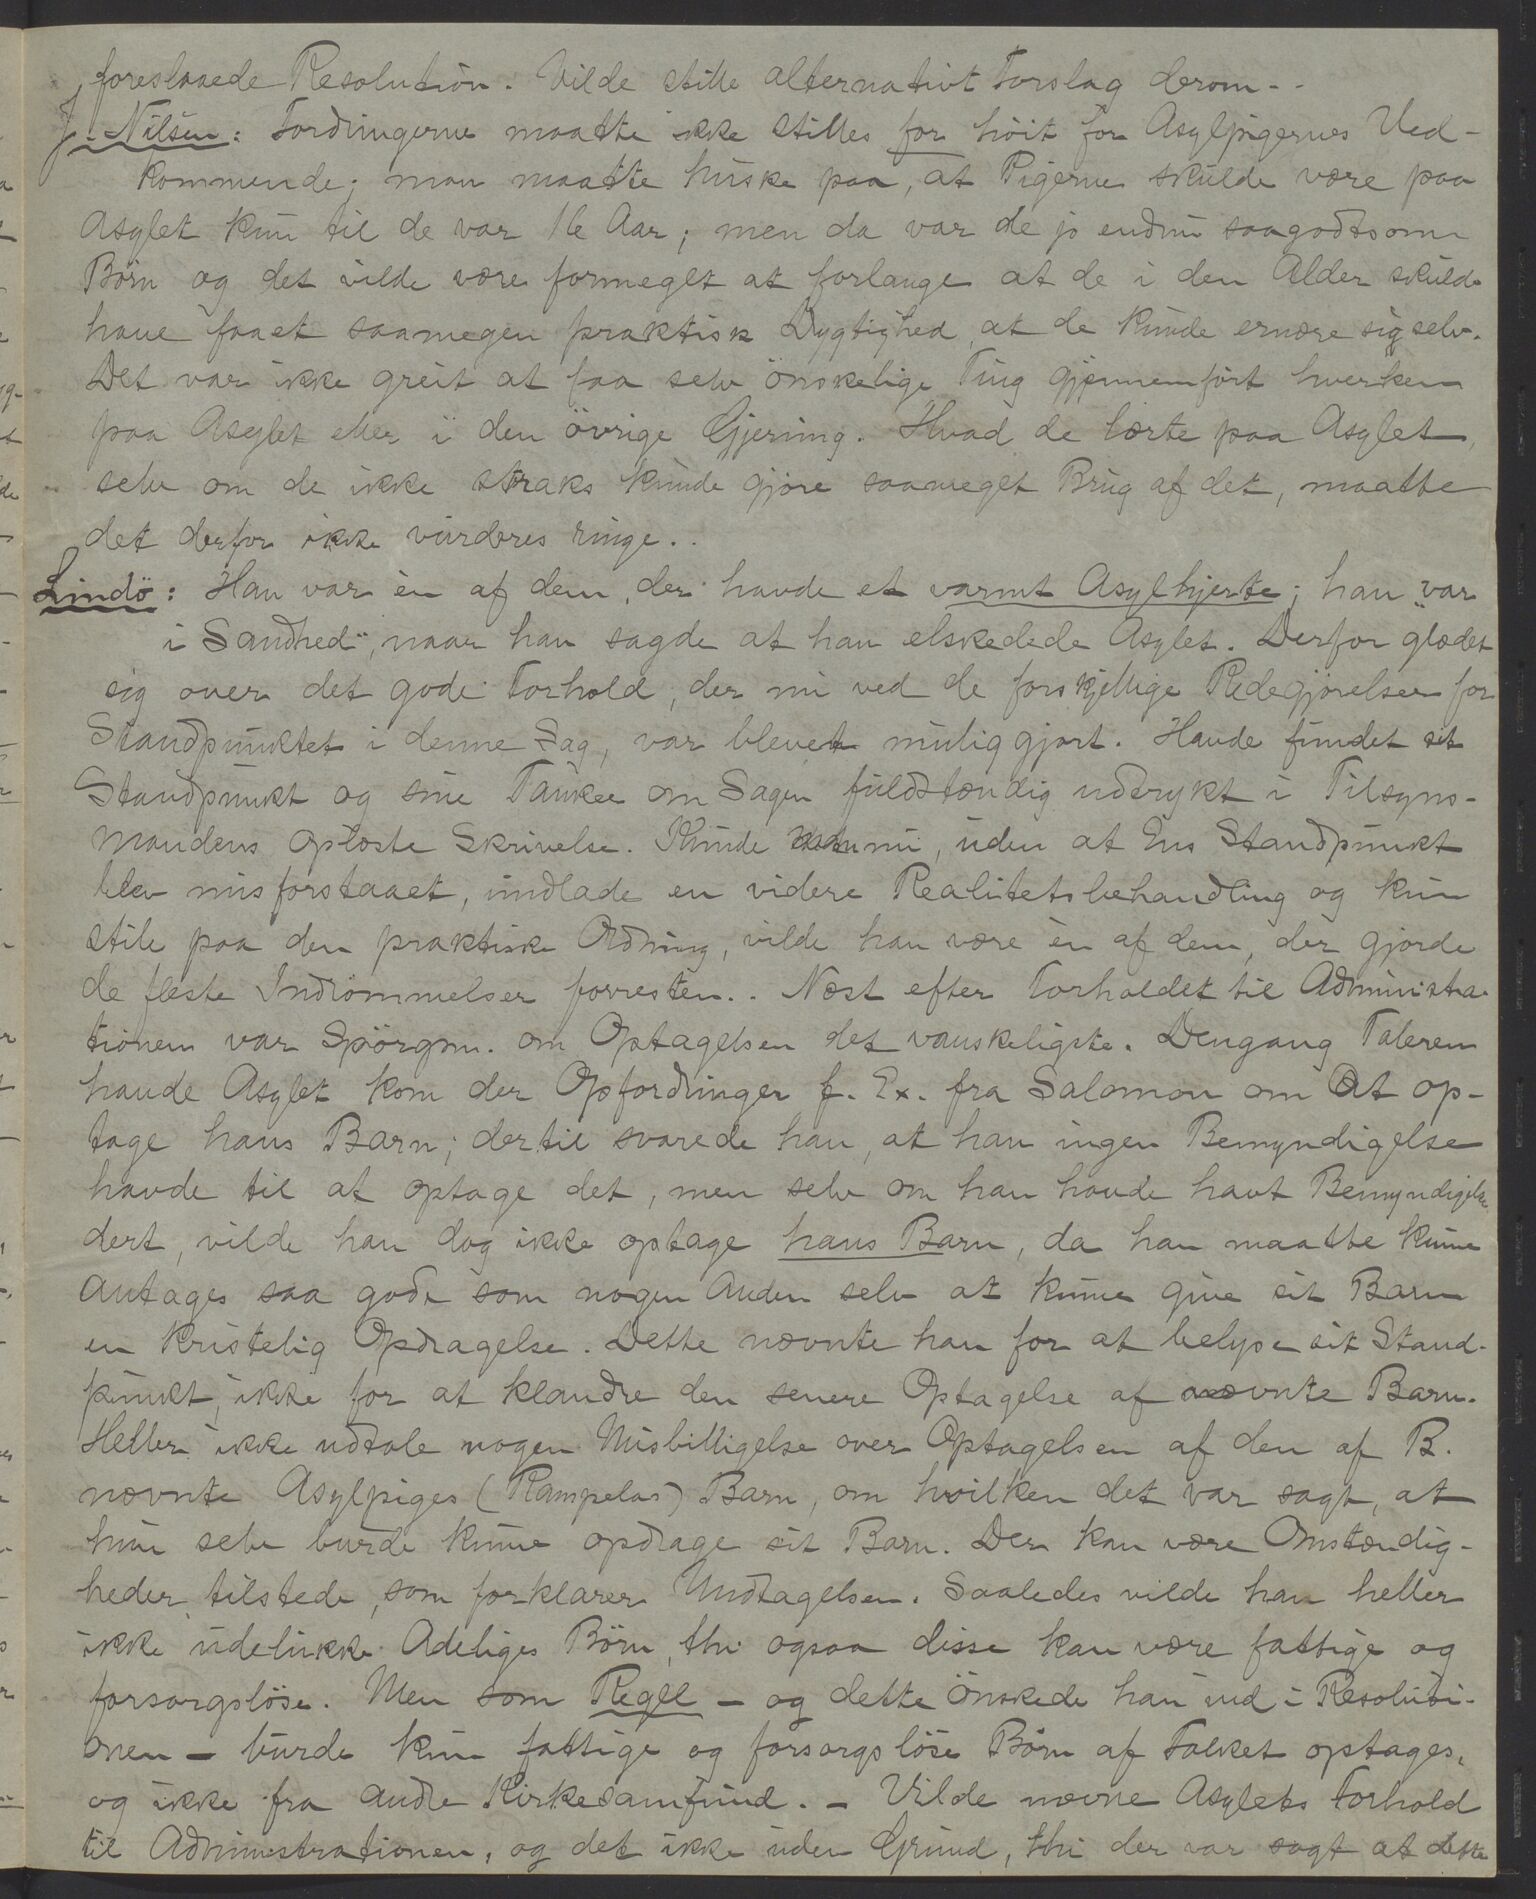 foreslaaede Resolution. Vilde stille alternativt Forslag derom..
J. Nilsen: Fordringerne maatte ikke stilles for höit for Asylpigernes Ved-
kommende; man maatte huske paa, at Pigerne skulde være paa
Asylet kun til de var 16 Aar; men da var de jo endnu saagodtsom
Börn og det vilde være formeget at forlange at de i den Alder skulde
have faaet saamegen praktisk Dygtighed, at de kunde ernære sig selv.
Det var ikke greit at faa selv önskelige Ting gjennemfört hverken
paa Asylet eller i den övrige Gjerning. Hvad de lærte paa Asylet,
selv om de ikke straks kunde gjöre saameget Brug af det, maatte
det derfor ikke vurderes ringe..
Lindö: Han var èn af dem, der havde et varmt Asylhjerte; han "var
i Sandhed", naar han sagde at han elskedede Asylet. Derfor glædet
sig over det gode Forhold, der nu ved de forskjellige Redegjörelser for
Standpunktet i denne Sag, var blevet muliggjort. Havde fundet sit
Standpunkt og sine Tanker om Sagen fuldstændig udtrykt i Tilsyns-
mandens oplæste Skrivelse. Kunde man nu, uden at Ens Standpunkt
blev misforstaaet, undlade en videre Realitetsbehandling og kun
stile paa den praktiske Ordning, vilde han være èn af dem, der gjorde
de fleste Indrömmelser forresten.. Næst efter Forholdet til Administra-
tionen var Spörgsm. om Optagelsen det vanskeligste. Dengang Taleren
havde Asylet kom der Opfordringer f. Ex. fra Salomon om at op-
tage hans Barn; dertil svarede han, at han ingen Bemyndigelse
havde til at optage det, men selv om han havde havt Bemyndigelse
dert, vilde han dog ikke optage hans Barn, da han maatte kunne
antages saa godt som nogen Anden selv at kunne give sit Barn
en kristelig Opdragelse. Dette nævnte han for at belyse sit Stand-
punkt, ikke for at klandre den senere Optagelse af nævnte Barn.
Heller ikke udtale nogen Misbilligelse over Optagelsen af den af B.
nævnte Asylpiges (Rampelas) Barn, om hvilken det var sagt, at
hun selv burde kunne opdrage sit Barn. Der kan være Omstændig-
heder tilstede, som forklarer Undtagelsen. Saaledes vilde han heller
ikke udelukke Adeliges Börn, thi ogsaa disse kan være fattige og
forsorgslöse. Men som Regel – og dette önskede han ind i Resoluti-
onen – burde kun fattige og forsorgslöse Börn af Folket optages,
og ikke fra andre Kirkesamfund. – Vilde nævne Asylets Forhold
til Administrationen, og det ikke uden Grund, thi der var sagt at dette